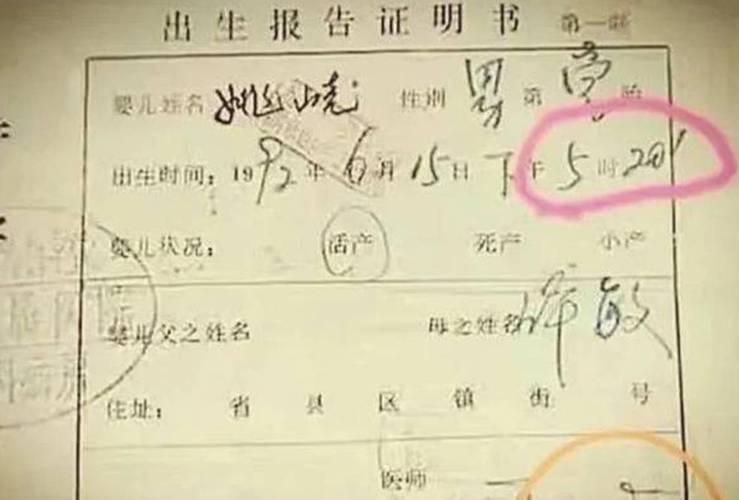 出生报告证明书 第一联
婴儿姓名 姚 性别 男 第 胎
出生时间：1992年6月15日下午5时20'
婴儿状况： 活产 死产 小产
婴儿父之姓名 母之姓名 许敏
住址： 省 县 区 镇 街 号
医师